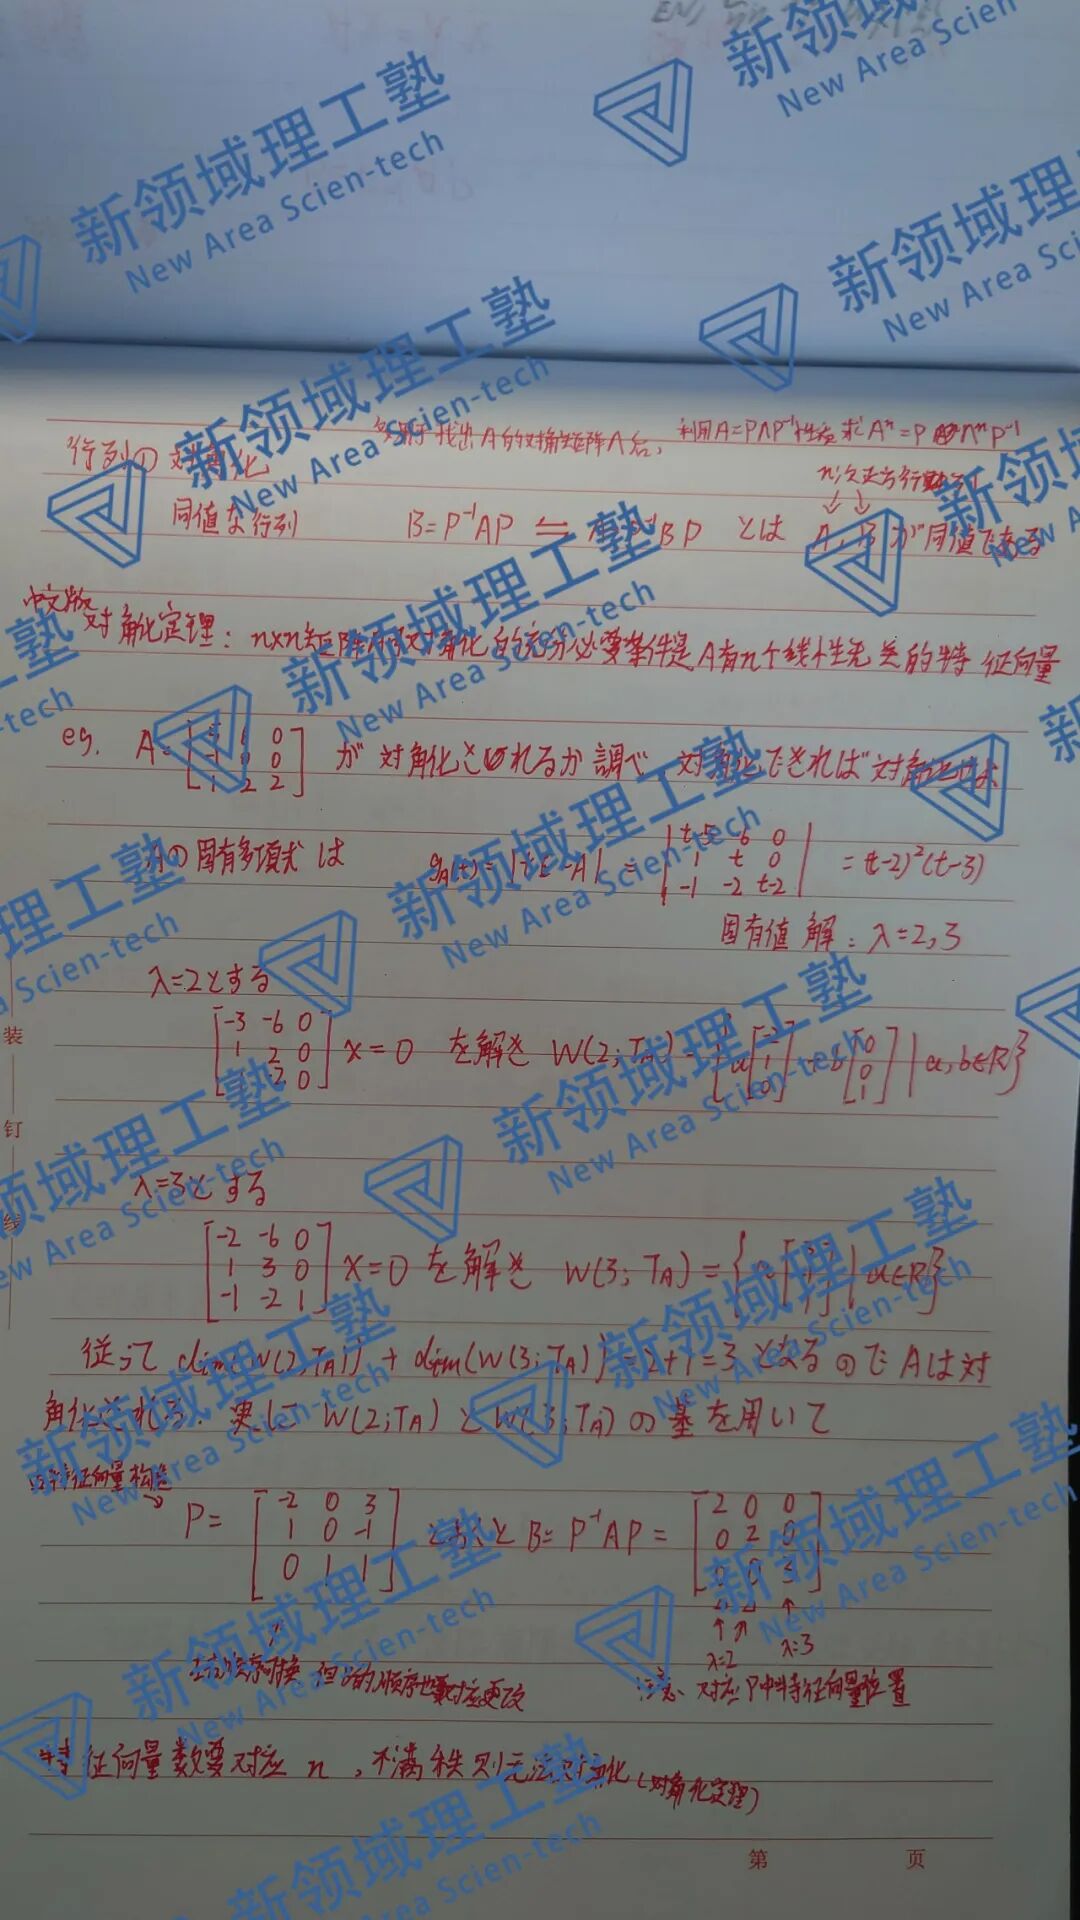 行列の対角化
多用于找出A的对角矩阵Λ后, 利用A=PΛP⁻¹性质求Aⁿ=PΛⁿP⁻¹
n次正方行列
同値な行列 B=P⁻¹AP ⇋ P⁻¹BP とは A, B が同値である
中文版
对角化定理: n×n矩阵A可对角化的充分必要条件是A有n个线性无关的特征向量
eg. A= 0 0 0 1 2 2 が対角化されるか調べ、対角化できれば対角化せよ
Aの固有多項式は gA(t)=|tE-A| = |t-5 -6 0
1 t 0
-1 -2 t-2| =(t-2)²(t-3)
固有値 解: λ=2,3
λ=2とする
[-3 -6 0
1 2 0
-2 0] x=0 を解き W(2;TA)={a[-2 1 0]+b[0 0 1]|a,b∈R}
λ=3とする
[-2 -6 0
1 3 0
-1 -2 1] x=0 を解き W(3;TA)={ | a∈R}
従って dim(W(2;TA))+dim(W(3;TA))=2+1=3 となるので Aは対
角化される. 実に W(2;TA)とW(3;TA)の基を用いて
特征向量构造
P= [-2 0 3
1 0 -1
0 1 1] とおくと B=P⁻¹AP= [2 0 0
0 2 0
0 0 3]
λ=2 λ=3
可换, 但 的顺序也要对应更改
注意: 对应P中特征向量位置
特征向量数要对应n, 不满秩则无法对角化(对角化定理)
装
钉
线
第 页
新领域理工塾
New Area Scien-tech